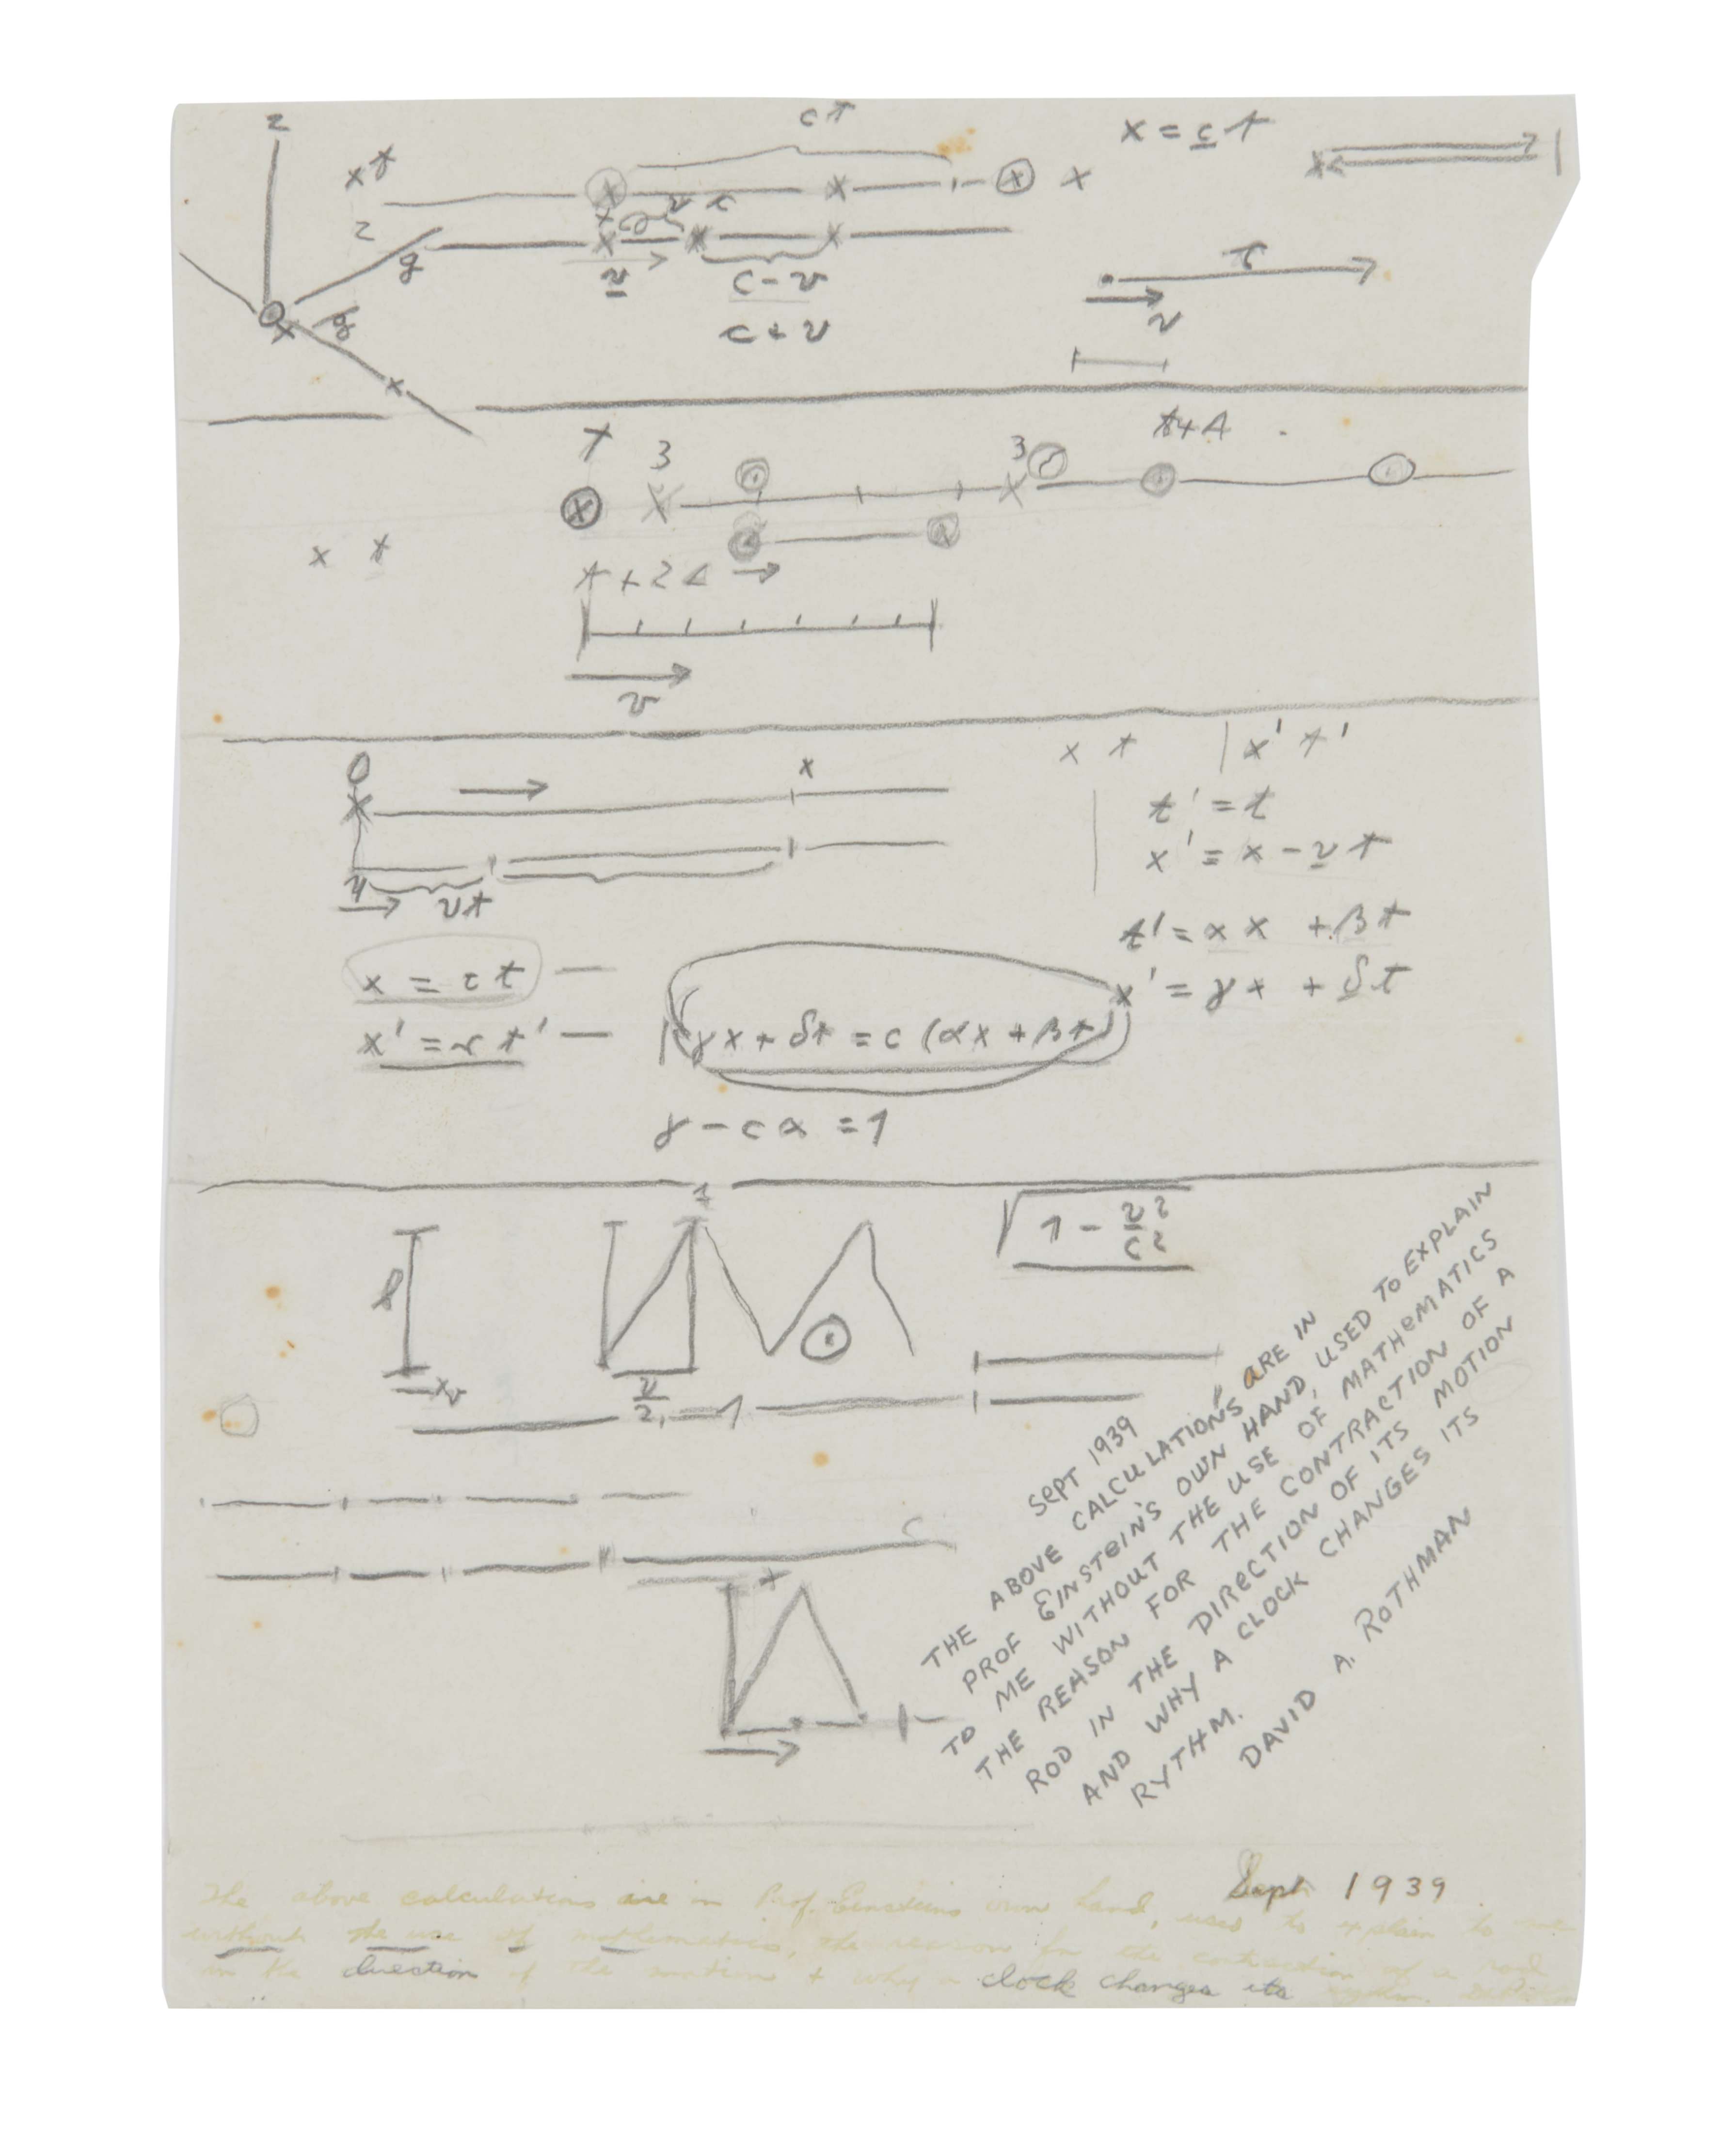 z
c t
x = c t
x t
x
z
v t
y
v
c - v
c + v
c
y
v
t
3
3
t + Δ
x t
t + 2 Δ
v
0
x
x t | x' t'
t' = t
x' = x - v t
v t
t' = α x + β t
x = c t
x' = γ x + δ t
x' = c t'
γ x + δ t = c (α x + β t)
γ - c α = 1
1
√1 - v²/c²
l
v
v/2
1
SEPT 1939
THE ABOVE CALCULATIONS ARE IN
PROF EINSTEIN'S OWN HAND, USED TO EXPLAIN
TO ME WITHOUT THE USE OF MATHEMATICS
THE REASON FOR THE CONTRACTION OF A
ROD IN THE DIRECTION OF ITS MOTION
AND WHY A CLOCK CHANGES ITS
RYTHM.
DAVID A. ROTHMAN
Sept 1939
The above calculations are in Prof. Einsteins own hand, used to explain to me
without the use of mathematics, the reason for the contraction of a rod
in the direction of the motion + why a clock changes its